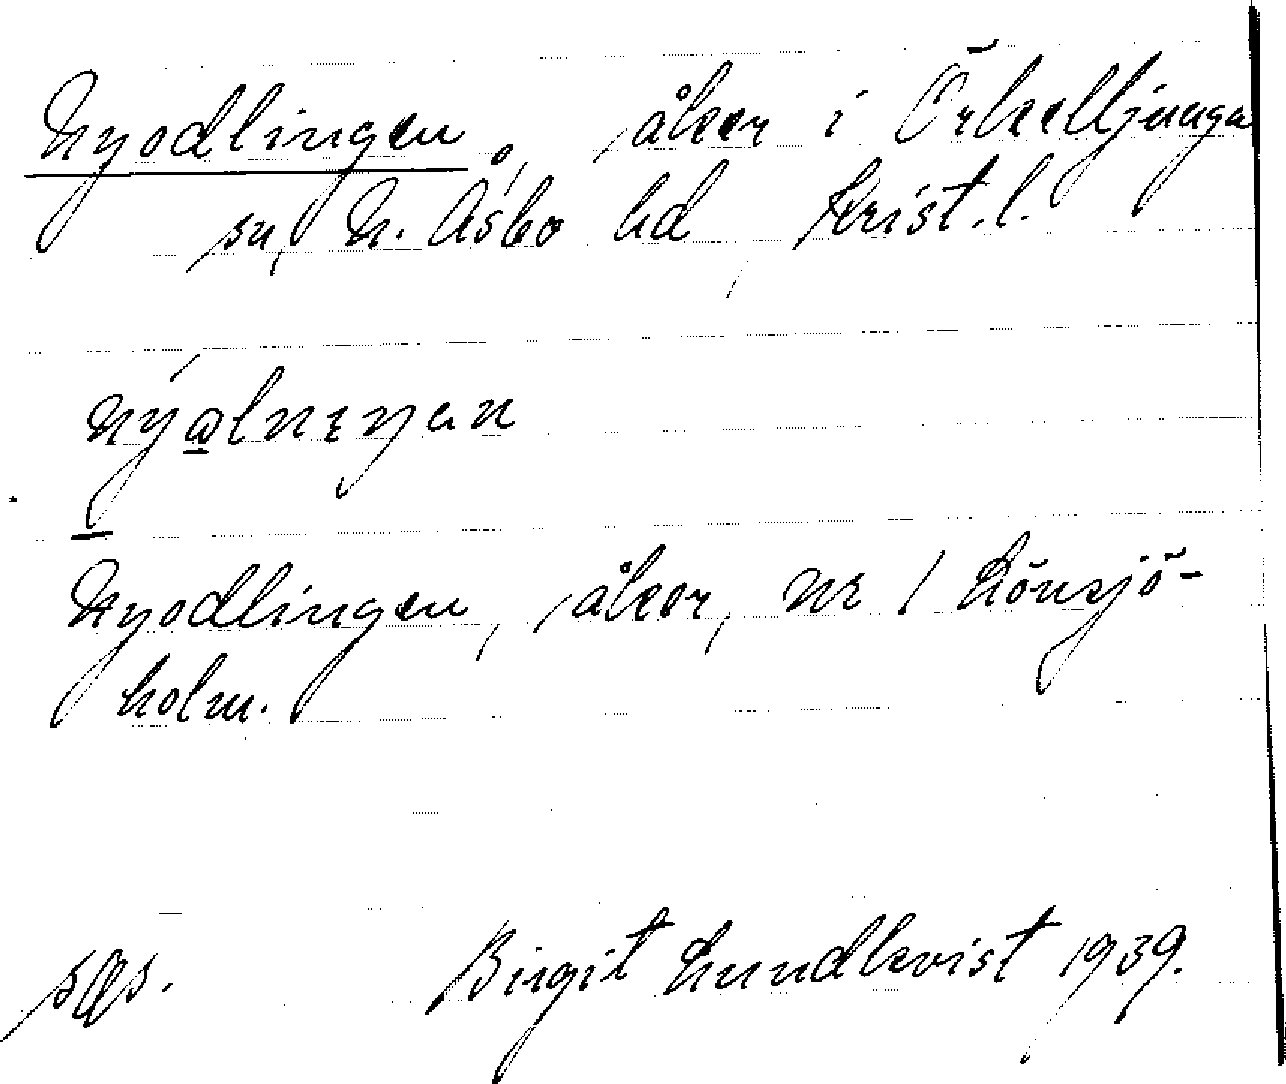 Nyodlingen, åker i Örkelljunga
sn, N. Åsbo hd Krist. l.
Nyodlingen, åker, nr 1 Rönsjö-
holm.
sgs. Birgit Lundkvist 1939.